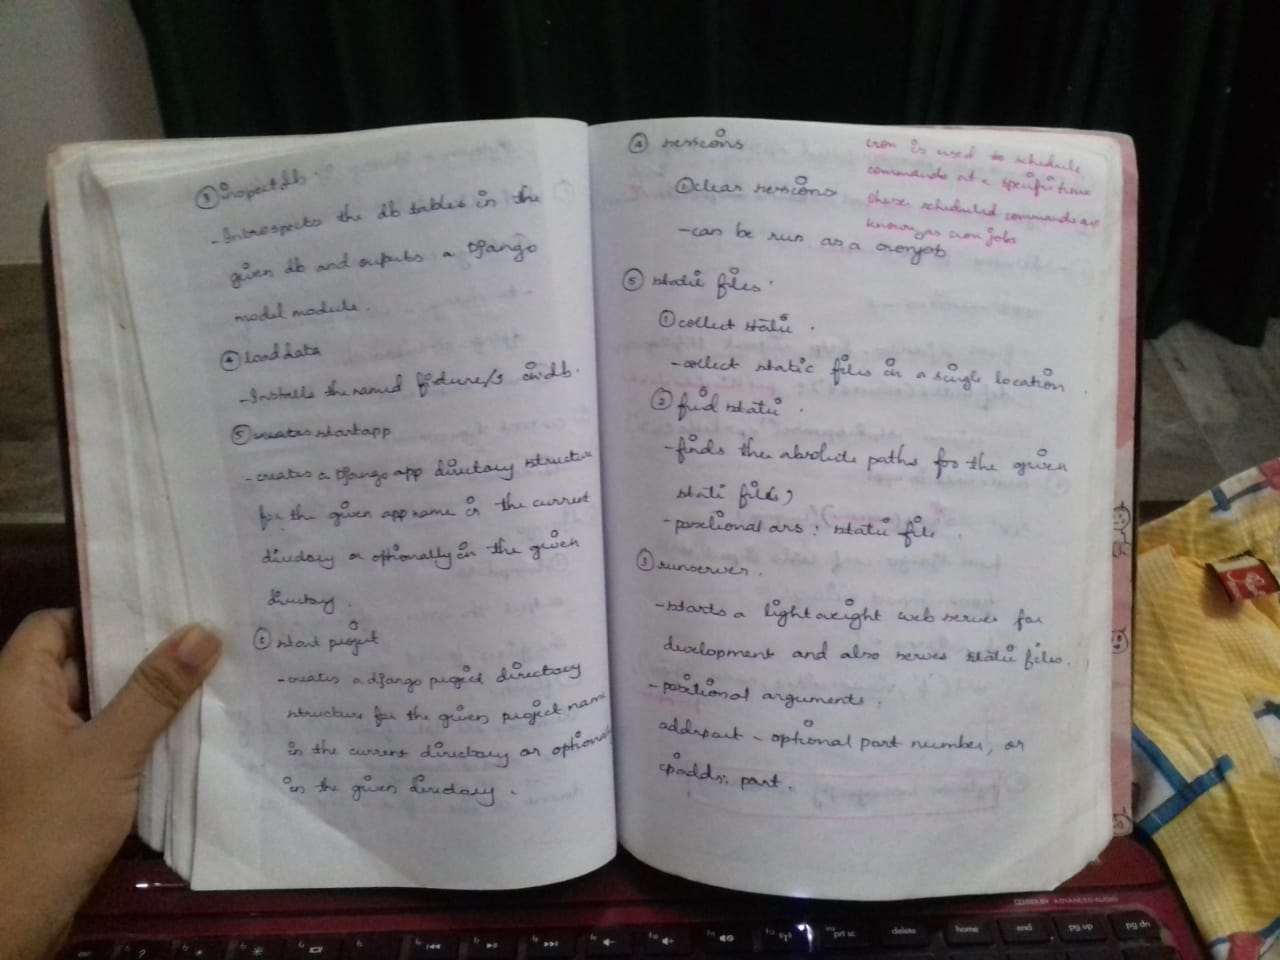 ③ inspectdb.
- Introspects the db tables in the
given db and ouputs a Django
model module.
④ loaddata
- Installs the named fixture/s in db.
⑤ creates startapp
- creates a Django app directory structure
for the given app name in the current
directory or optionally in the given
directory.
⑥ start project
- creates a django project directory
structure for the given project name
in the current directory or optional
in the given directory.
④ sessions
① clear sessions
- can be run as a cronjob
cron is used to schedule
commands at a specific time
these scheduled commands are
known as cron jobs
⑤ static files.
① collect static.
- collect static files in a single location.
② find static.
- finds the absolute paths for the given
static files,
- positional ars: static file.
③ runserver.
- starts a light weight web server for
development and also serves static files.
- positional arguments.
addrport - optional port number, or
ipaddr: port.
DOLBY ADVANCED AUDIO
esc
prt sc
delete
home
end
pg up
pg dn